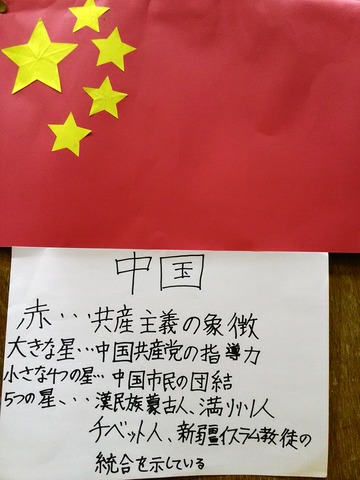 中国
赤…共産主義の象徴
大きな星…中国共産党の指導力
小さな4つの星…中国市民の団結
5つの星、、、漢民族蒙古人、満州人
チベット人、新疆イスラム教徒の
統合を示している